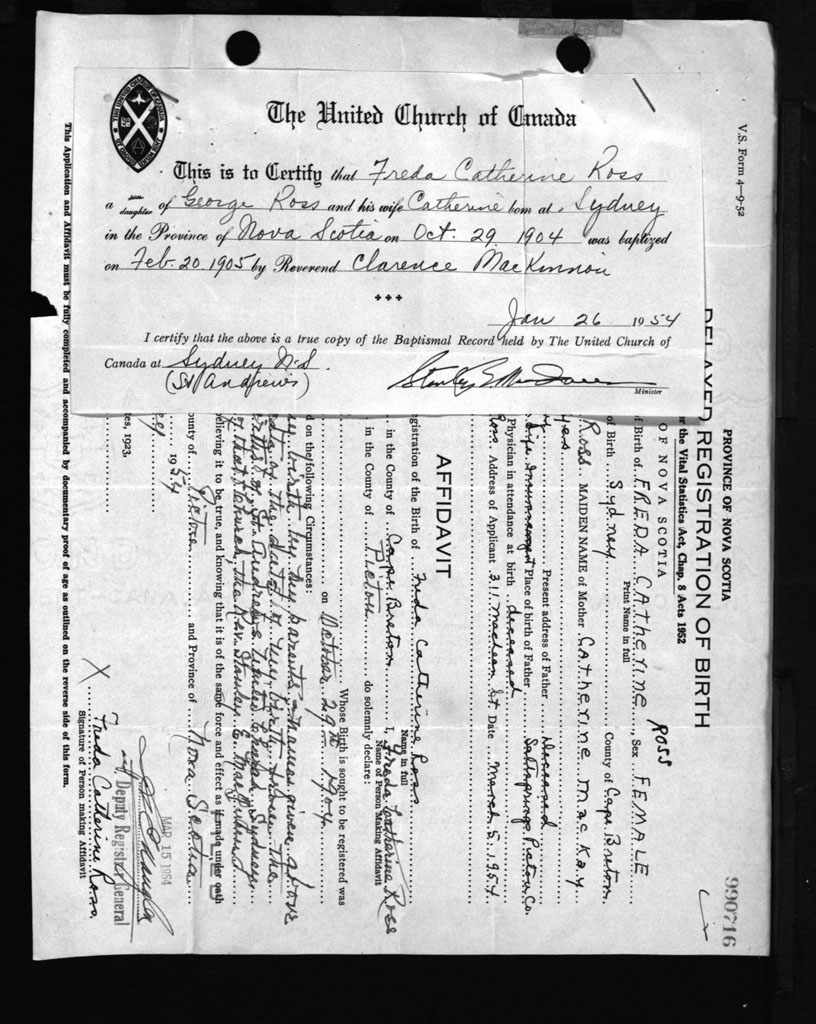 The United Church of Canada
This is to Certify that Freda Catherine Ross
a son daughter of George Ross and his wife Catherine born at Sydney
in the Province of Nova Scotia on Oct. 29 1904 was baptized
on Feb. 20 1905 by Reverend Clarence MacKinnon
Jan 26 1954
I certify that the above is a true copy of the Baptismal Record held by The United Church of
Canada at Sydney N.S.
(St Andrews)
Minister
V.S. Form 4-9-52
990716
PROVINCE OF NOVA SCOTIA
DELAYED REGISTRATION OF BIRTH
the Vital Statistics Act, Chap. 8 Acts 1952
OF NOVA SCOTIA
ROSS
of Birth of FREDA CATHERINE, Sex FEMALE
Print Name in full
of Birth Sydney County of Cape Breton
Ross MAIDEN NAME of Mother Catherine MacKay
yes Present address of Father Deceased
Place of birth of Father Saltsprings Pictou Co.
Physician in attendance at birth deceased
Ross Address of Applicant 311 MacLean St. Date March 5, 1954
AFFIDAVIT
Registration of the Birth of Freda Catherine Ross
Name in full
in the County of Cape Breton I, Freda Catherine Ross
Name of Person Making Affidavit
in the County of Pictou do solemnly declare:
Whose Birth is sought to be registered was
on October 29th 1904
d on the following Circumstances:
my birth by my parents - names given above
of the date of my birth given the
of St. Andrews United Church Sydney
of that church, the Rev. Stanley E.
elieving it to be true, and knowing that it is of the same force and effect as if made under oath
ounty of Pictou and Province of Nova Scotia
1954
tes, 1923,
MAR 15 1954
Deputy Registrar General
X Freda Catherine Ross
Signature of Person making Affidavit
This Application and Affidavit must be fully completed and accompanied by documentary proof of age as outlined on the reverse side of this form.